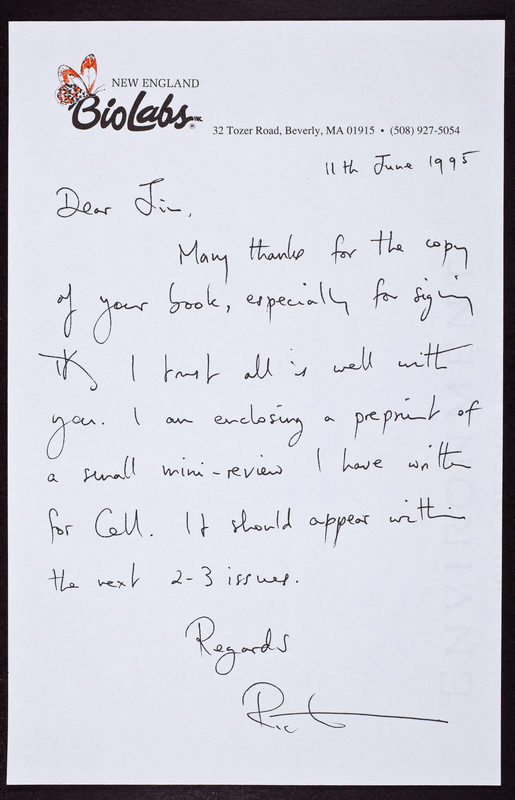 NEW ENGLAND
BioLabs INC. ®
32 Tozer Road, Beverly, MA 01915 • (508) 927-5054
11th June 1995
Dear Jim,
Many thanks for the copy
of your book, especially for signing
it. I trust all is well with
you. I am enclosing a preprint of
a small mini-review I have written
for Cell. It should appear within
the next 2-3 issues.
Regards
Rich
ENVIRONMEN